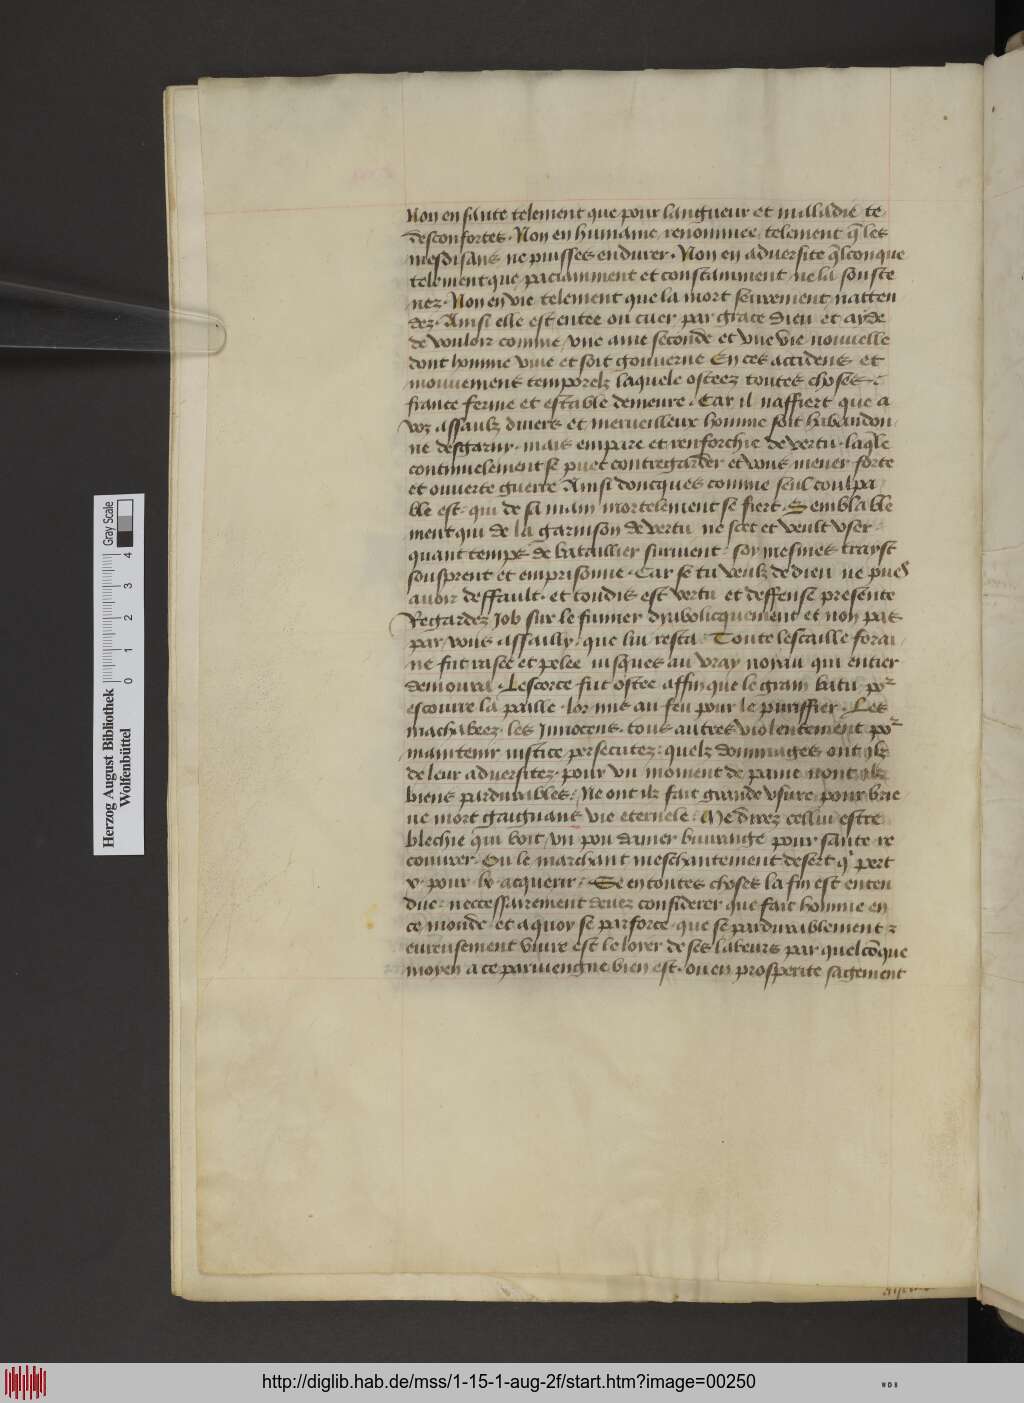 Non en sante telement que pour langueur et malladie te
desconfortes. Non en humaine renommee telement q̄ les
mesdisans ne puisses endurer. Non en adversite q̄lconque
telement que paciamment et constamment ne la souste
nez. Non en vie telement que la mort seurement natten
dez. Ainsi elle est entee ou cuer par grace dieu et ayde
de vouloir comme une ame seconde et une vie nouvelle
dont homme vive et soit gouverne En ces accidens et
mouvemens temporelz laquele osteez toutes choses
france ferme et estable demeure. Car il naffiert que a
voz assaulz divers et merveilleux homme soit habandon
ne desgarny. mais empare et renforchie de vertu. laq̄le
continuelement se puet contregarder et vous mener forte
et ouverte guerre Ainsi doncques comme seul coulpa
ble est qui de sa main mortelement se fiert. Semblable
ment qui de la garnison de vertu ne scet et veult user
quant temps de bataillier survient soy mesmes trayst
sousprent et emprisonne. Car se tu veulz de dieu ne pues
avoir deffault. et toudis est vertu et deffense presente
Regardez Job sur le fumier dyabolicquement et non pas
par vous assailly. que luy resta Toute lescaille forai
ne fut rasee et pelee iusques au vray noyau qui entier
demoura. Lescorce fut ostee affin que le grain batu por
escourre la paille. lor mis au feu pour le puriffier. Les
machabeez. les Innocens. tous autres violentement por
maintenir iustice persecutez: quelz dommages ont ilz
de leur adversitez. pour un moment de paine nont ilz
biens pardurables. Ne ont ilz fait grande usure pour brie
ve mort gaignans vie eternele. Me direz cellui estre
blechie qui boit un pou damer buvrange pour sante re
couvrer. Ou le marchant meschantement desert qi pert
v. pour lx acquerir. Se en toutes choses la fin est enten
due. neccessairement devez considerer que fait homme en
ce monde et a quoy se parforce. que se pardurablement z
eureusement vivre est le loyer de ses labeurs par quelcōque
moyen a ce parviengne bien est. ou en prosperite sagement
Herzog August Bibliothek
Wolfenbüttel
0 1 2 3 4
Gray Scale
http://diglib.hab.de/mss/1-15-1-aug-2f/start.htm?image=00250
WDB